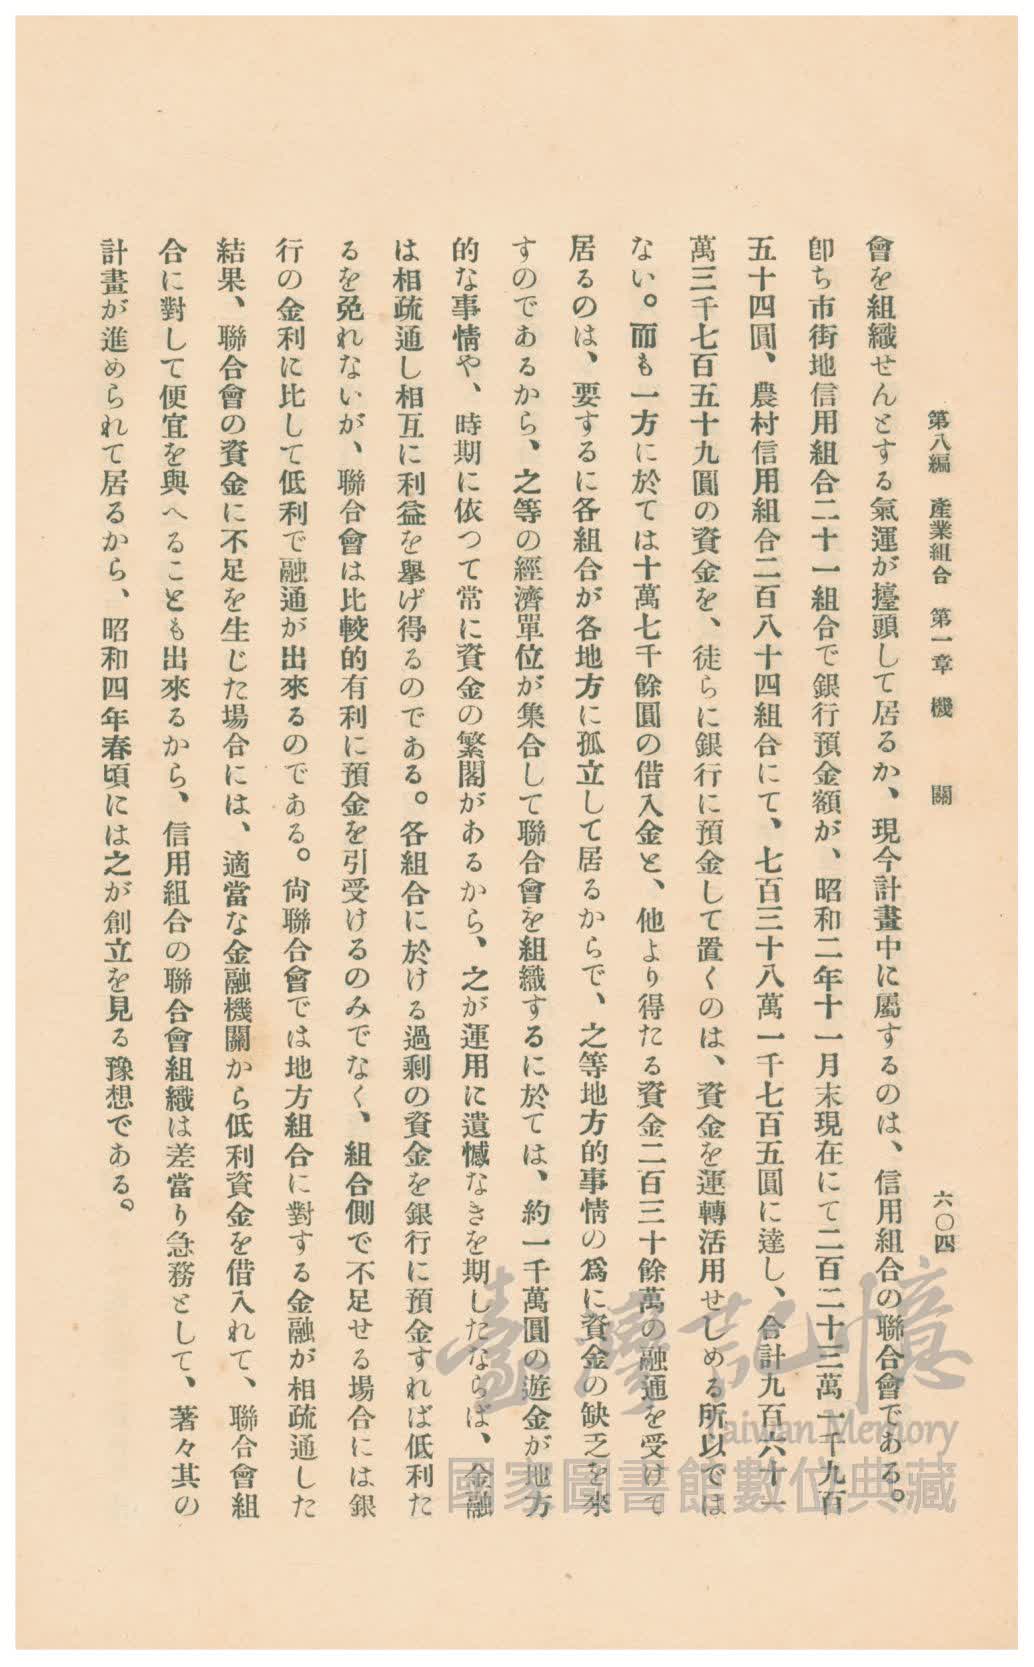 第八編　産業組合　第一章　機　關　六〇四
會を組織せんとする氣運が擡頭して居るか、現今計畫中に屬するのは、信用組合の聯合會である。
卽ち市街地信用組合二十一組合で銀行預金額が、昭和二年十一月末現在にて二百二十三萬一千九百
五十四圓、農村信用組合二百八十四組合にて、七百三十八萬一千七百五圓に達し、合計九百六十一
萬三千七百五十九圓の資金を、徒らに銀行に預金して置くのは、資金を運轉活用せしめる所以では
ない。而も一方に於ては十萬七千餘圓の借入金と、他より得たる資金二百三十餘萬の融通を受けて
居るのは、要するに各組合が各地方に孤立して居るからで、之等地方的事情の爲に資金の缺乏を來
すのであるから、之等の經濟單位が集合して聯合會を組織するに於ては、約一千萬圓の遊金が地方
的な事情や、時期に依つて常に資金の繁閑があるから、之が運用に遺憾なきを期したならば、金融
は相疏通し相互に利益を擧げ得るのである。各組合に於ける過剩の資金を銀行に預金すれば低利た
るを免れないが、聯合會は比較的有利に預金を引受けるのみでなく、組合側で不足せる場合には銀
行の金利に比して低利で融通が出來るのである。尙聯合會では地方組合に對する金融が相疏通した
結果、聯合會の資金に不足を生じた場合には、適當な金融機關から低利資金を借入れて、聯合會組
合に對して便宜を與へることも出來るから、信用組合の聯合會組織は差當り急務として、著々其の
計畫が進められて居るから、昭和四年春頃には之が創立を見る豫想である。
臺灣記憶
Taiwan Memory
國家圖書館數位典藏